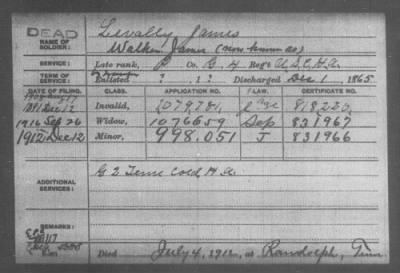 DEAD
NAME OF SOLDIER:
Levally James
Walker James (now known as)
SERVICE:
Late rank, P Co. G 4 Reg't U.S.C.H.A.
TERM OF SERVICE:
Enlisted ? , 1 ? Discharged Dec 1 , 1865
DATE OF FILING. CLASS. APPLICATION NO. LAW. CERTIFICATE NO.
1891 Dec 12 Invalid, 1079,781, 818,220,
1916 Sep 26 Widow, 1076659 Sep 831967
1912 Dec 12 Minor, 998,051 J 831966
ADDITIONAL SERVICES:
G 2 Tenn Cold H A
REMARKS:
Died July 4, 1912, at Randolph, Tenn